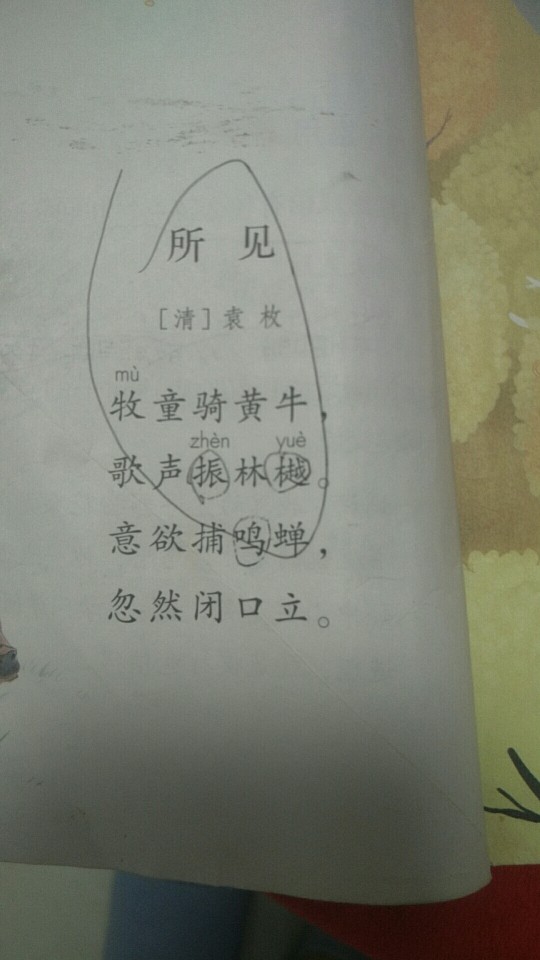 所见
[清]袁枚
mù
牧童骑黄牛，
zhèn yuè
歌声振林樾。
意欲捕鸣蝉，
忽然闭口立。